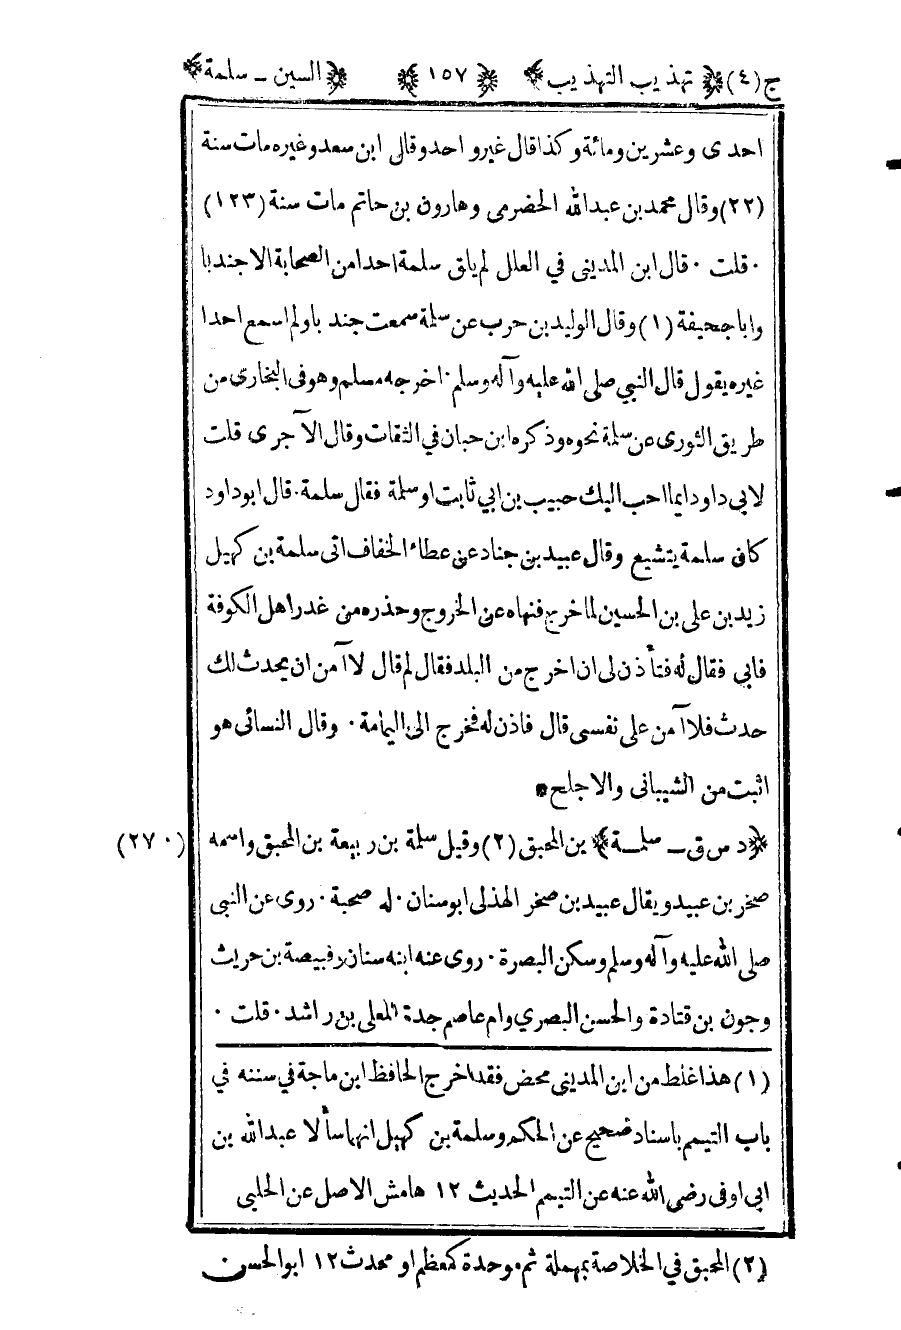 ج (٤) ﴿ تهذيب التهذيب ﴾ ﴿ ١٥٧ ﴾ ﴿ السين ــ سلمة ﴾
احدى وعشرين ومائة وكذا قال غير واحد وقال ابن سعد وغيره مات سنة
(٢٢) وقال محمد بن عبدالله الحضرمى وهارون بن حاتم مات سنة (١٢٣)
· قلت · قال ابن المدينى في العلل لم يلق سلمة احدا من الصحابة الا جندبا
وابا جحيفة (١) وقال الوليد بن حرب عن سلمة سمعت جند با ولم اسمع احدا
غيره يقول قال النبي صلى الله عليه وآله وسلم · اخرجه مسلم وهو فى البخارى من
طريق الثورى عن سلمة نحوه وذكره ابن حبان في الثقات وقال الآجرى قلت
لابى داود ايما احب اليك حبيب بن ابي ثابت او سلمة فقال سلمة · قال ابو داود
كان سلمة يتشيع وقال عبيد بن جناد عن عطاء الخفاف اتى سلمة بن كهيل
زيد بن على بن الحسين لما خرج فنهاه عن الخروج وحذره من غدر اهل الكوفة
فابى فقال له فتأذن لى ان اخرج من البلد فقال لم قال لا آمن ان يحدث لك
حدث فلا آمن على نفسى قال فاذن له فخرج الى اليمامة · وقال النسائى هو
اثبت من الشيبانى والاجلح *
﴿ د س ق ــ سلمــة ﴾ بن المحبق (٢) وقيل سلمة بن ربيعة بن المحبق واسمه (٢٧٠)
صخر بن عبيد ويقال عبيد بن صخر الهذلى ابو سنان · له صحبة · روى عن النبى
صلى الله عليه وآله وسلم وسكن البصرة · روى عنه ابنه سنان وقبيصة بن حريث
وجون بن قتادة والحسن البصري وام عاصم جدة المعلى بن راشد · قلت ·
(١) هذا غلط من ابن المدينى محض فقد اخرج الحافظ ابن ماجة في سننه في
باب التيمم باسناد صحيح عن الحكم وسلمة بن كهيل انهما سألا عبدالله بن
ابى اوفى رضى الله عنه عن التيمم الحديث ١٢ هامش الاصل عن الحلبى
(٢) المحبق في الخلاصة بمهملة ثم موحدة كمعظم او محدث ١٢ ابو الحسن